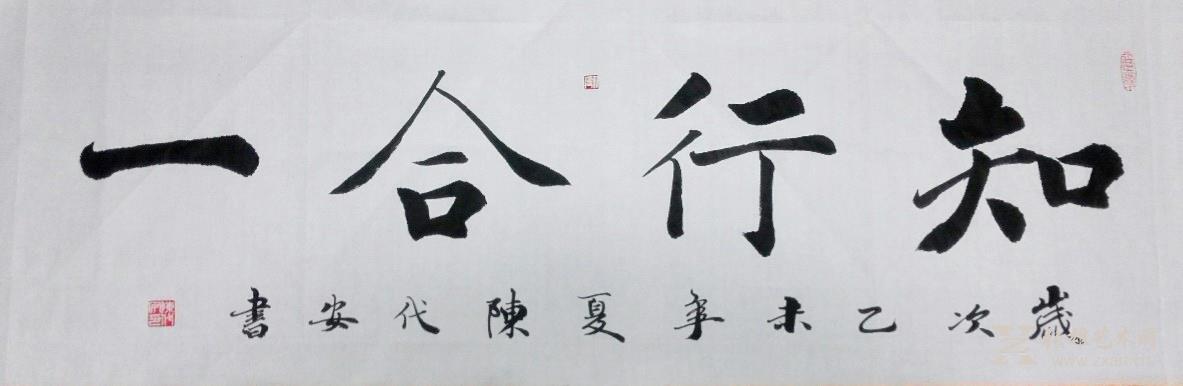 知行合一
歲次乙未年夏陳代安書
www.zxart.cn